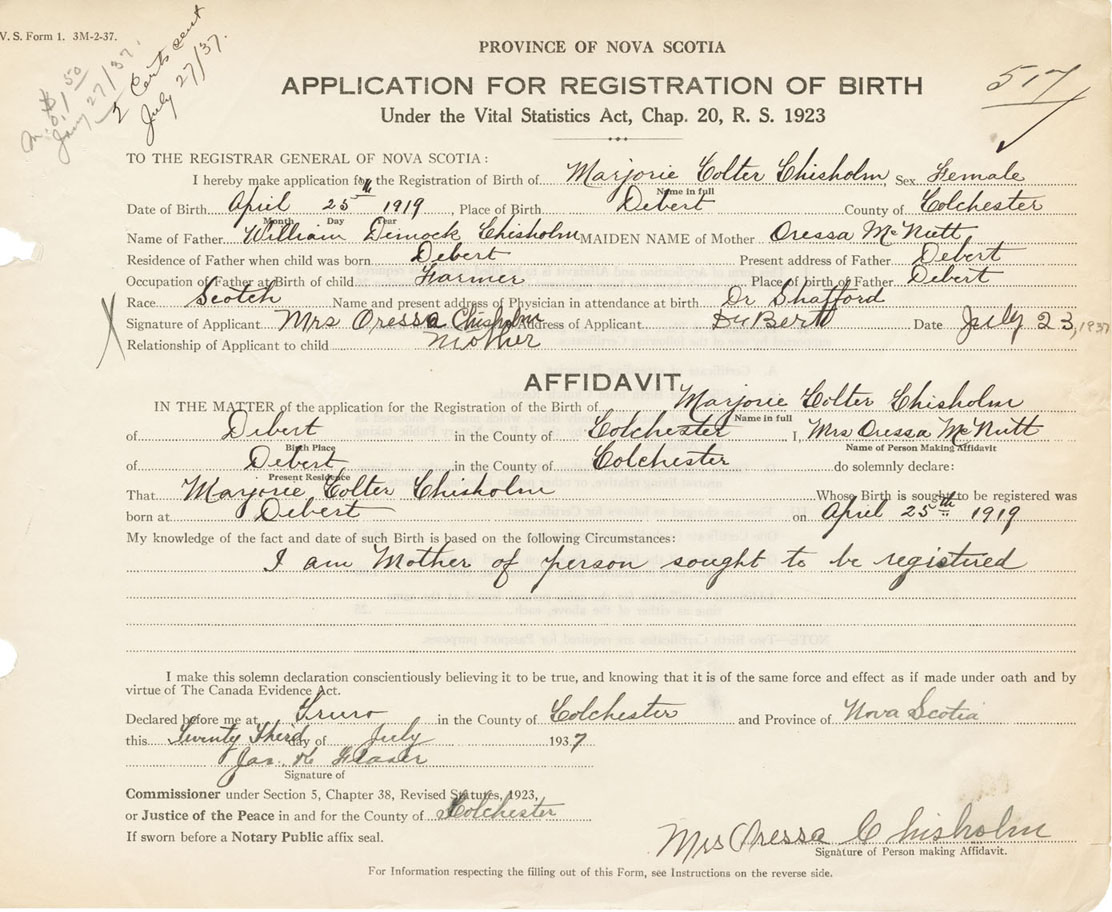 V. S. Form 1. 3M-2-37.
$1.50
July 27/37.
2 Certs sent
July 27/37.
517
PROVINCE OF NOVA SCOTIA
APPLICATION FOR REGISTRATION OF BIRTH
Under the Vital Statistics Act, Chap. 20, R. S. 1923
TO THE REGISTRAR GENERAL OF NOVA SCOTIA:
I hereby make application for the Registration of Birth of Marjorie Colter Chisholm, Sex Female
Name in full
Date of Birth April 25th 1919, Place of Birth Debert County of Colchester
Month Day Year
Name of Father William Dimock Chisholm MAIDEN NAME of Mother Oressa McNutt
Residence of Father when child was born Debert Present address of Father Debert
Occupation of Father at Birth of child Farmer Place of birth of Father Debert
Race Scotch Name and present address of Physician in attendance at birth Dr Shafford
Signature of Applicant Mrs Oressa Chisholm Address of Applicant DeBert Date July 23, 1937
Relationship of Applicant to child mother
AFFIDAVIT
IN THE MATTER of the application for the Registration of the Birth of Marjorie Colter Chisholm
Name in full
of Debert in the County of Colchester I, Mrs Oressa McNutt
Birth Place Name of Person Making Affidavit
of Debert in the County of Colchester do solemnly declare:
Present Residence
That Marjorie Colter Chisholm Whose Birth is sought to be registered was
born at Debert on April 25th 1919
My knowledge of the fact and date of such Birth is based on the following Circumstances:
I am Mother of person sought to be registered
I make this solemn declaration conscientiously believing it to be true, and knowing that it is of the same force and effect as if made under oath and by
virtue of The Canada Evidence Act.
Declared before me at Truro in the County of Colchester and Province of Nova Scotia
this Twenty Third day of July 1937
Jas. K Fraser
Signature of
Commissioner under Section 5, Chapter 38, Revised Statutes, 1923,
or Justice of the Peace in and for the County of Colchester
If sworn before a Notary Public affix seal.
Mrs Oressa Chisholm
Signature of Person making Affidavit.
For Information respecting the filling out of this Form, see Instructions on the reverse side.